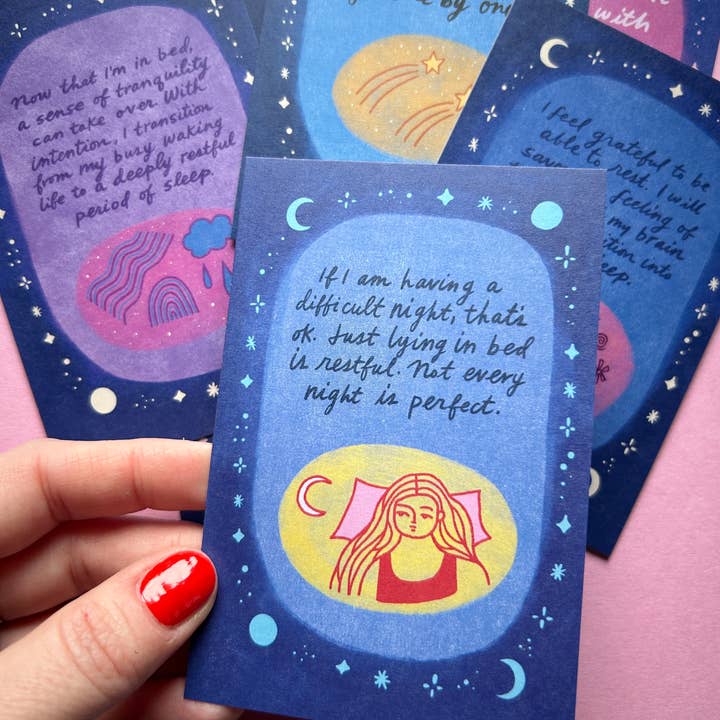 Now that I'm in bed,
a sense of tranquility
can take over. With
intention, I transition
from my busy waking
life to a deeply restful
period of sleep.
by one
with
I feel grateful to be
able to rest. I will
feeling of
my brain
into
If I am having a
difficult night, that's
ok. Just lying in bed
is restful. Not every
night is perfect.